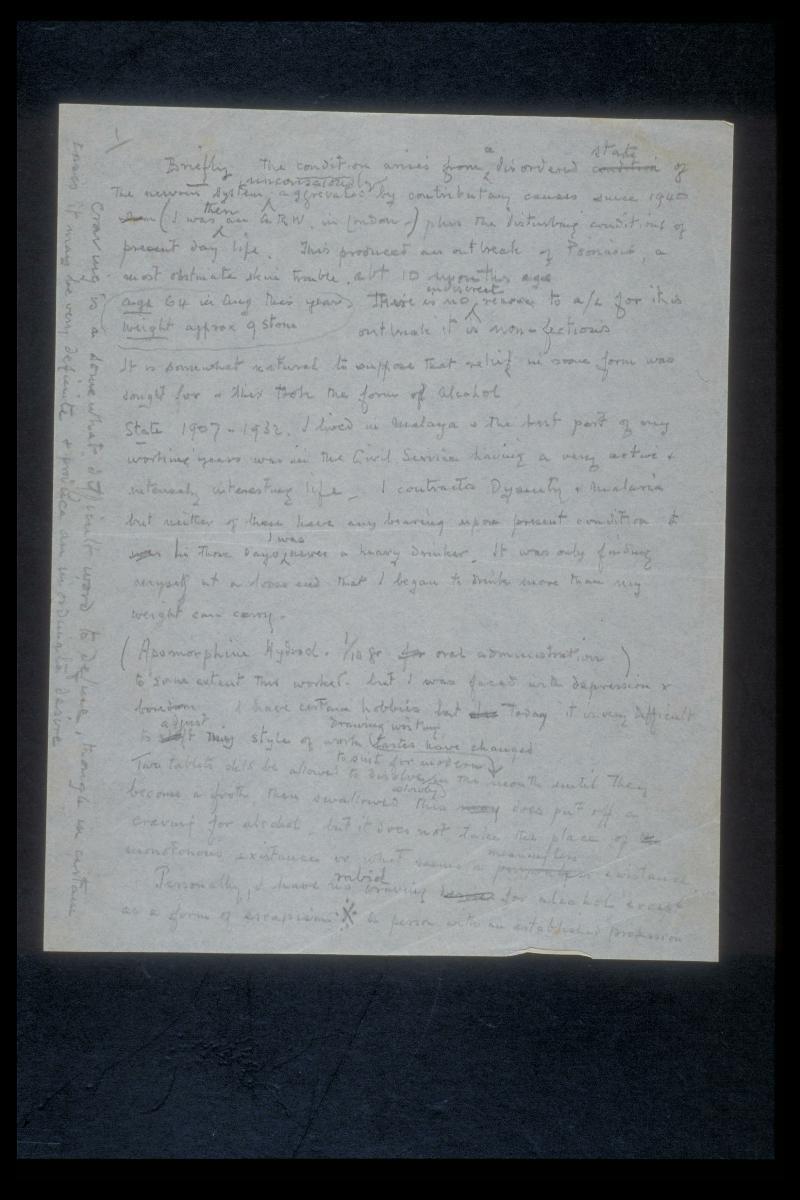 1/
Briefly, the condition arises from a disordered condition state of
the nervous system, unconsciously aggrevated by contributary causes since 1940
(I was then an A.R.W. in London) plus the disturbing conditions of
present day life. This produced an outbreak of Psoriasis, a
most obstinate skin trouble, abt 10 months ago
age 64 in Aug this year) There is no indiscreet reason to a/c for this
weight approx 9 stone outbreak it is non-fectious
It is somewhat natural to suppose that relief in some form was
sought for & this took the form of Alcohol
State 1907-1932. I lived in Malaya & the best part of my
working years was in the Civil Service having a very active &
intensely interesting life. I contracted Dysentry & Malaria
but neither of these have any bearing upon present condition &
in those days I was never a heavy drinker. It was only finding
myself at a loose end that I began to drink more than my
weight can carry.
(Apomorphine Hydrocl. 1/10 gr. for oral administration)
to some extent this worked. but I was faced with depression &
boredom. I have certain hobbies but Today it is very difficult
to adjust my style of work drawing writing (tastes have changed
to suit for modern)
Two tablets shld be allowed to dissolve slowly in the mouth until they
become a froth, then swallowed this does put off a
craving for alcohol, but it does not take the place of
monotonous existance or what seems a meaningless existance
Personally, I have no rabid craving for alcohol except
as a form of escapism. ※ a person with an established profession
Craving is a somewhat difficult word to define, though in certain
cases it may be very definite & produce an inordinate desire